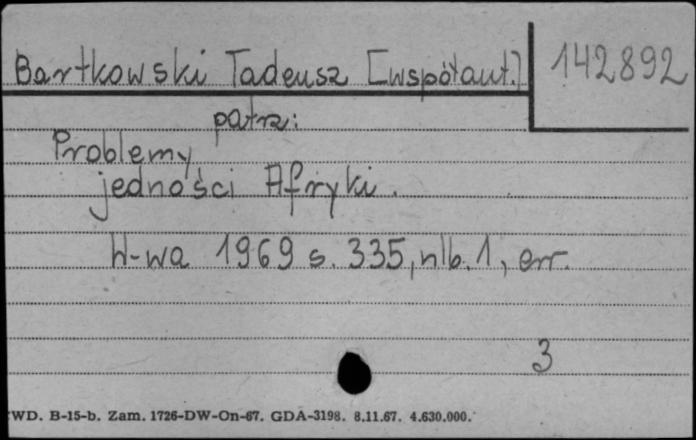 Bartkowski Tadeusz [współaut.] 142892
patrz:
Problemy
jedności Afryki.
W-wa 1969 s. 335, nlb. 1, err.
3
WD. B-15-b. Zam. 1726-DW-On-67. GDA-3198. 8.11.67. 4.630.000.